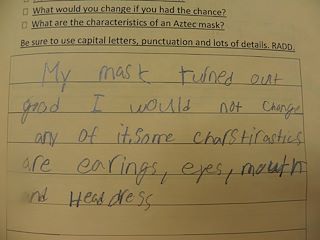 □ What would you change if you had the chance?
□ What are the characteristics of an Aztec mask?
Be sure to use capital letters, punctuation and lots of details. RADD.
My mask turned out
good I would not change
any of it. some charstirastics
are earings, eyes, mouth
and Headdress